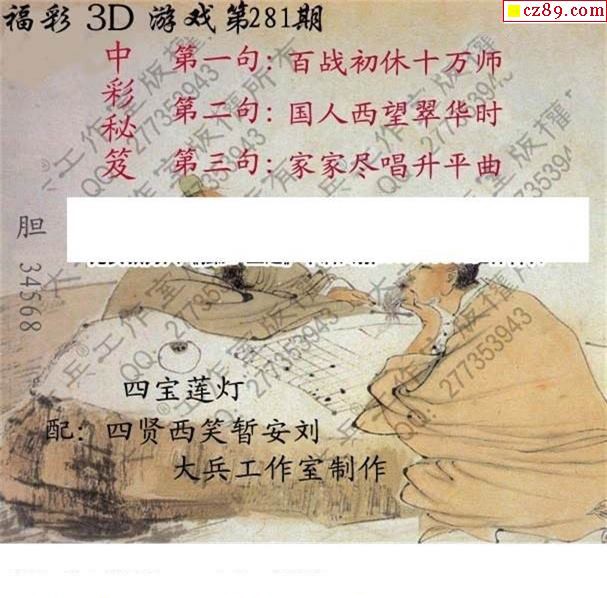 福彩 3D 游戏第281期
cz89.com
中彩秘笈
第一句：百战初休十万师
第二句：国人西望翠华时
第三句：家家尽唱升平曲
胆 34568
四宝莲灯
配：四贤西笑暂安刘
大兵工作室制作
大兵工作室版权所有
QQ:277353943